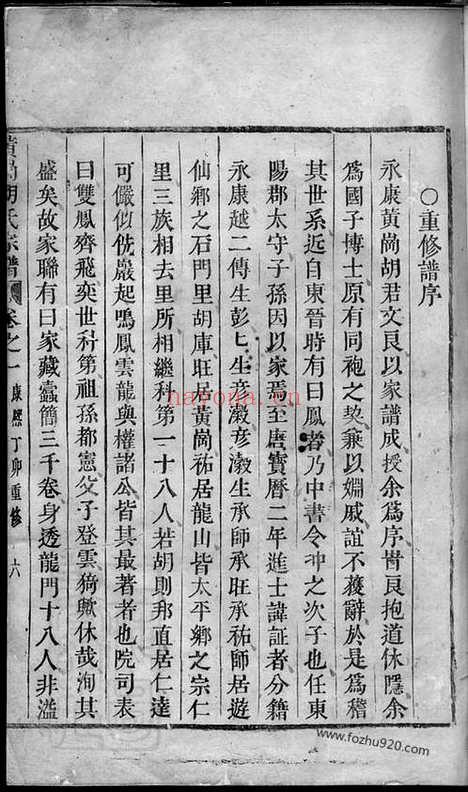 ○重修譜序
永康黃崗胡君文良以家譜成授余爲序甞良抱道休隱余
爲國子博士原有同袍之契兼以婣戚誼不獲辭於是爲稽
其世系近自東晉時有曰鳳者乃中書令冲之次子也任東
陽郡太守子孫因以家焉至唐寶曆二年進士諱証者分籍
永康越二傳生彭彭生彥澂彥澂生承師承旺承祐師居遊
仙鄉之石門里胡庫旺居黃崗祐居龍山皆太平鄉之宗仁
里三族相去里所相繼科第一十八人若胡則邦直居仁達
可儼似侁巖起鳴鳳雲龍與權諸公皆其最著者也院司表
曰雙鳳齊飛奕世科第祖孫都憲父子登雲猗歟休哉洵其
盛矣故家聯有曰家藏蠹簡三千卷身透龍門十八人非溢
黃崗胡氏家譜 卷之一 康熙丁卯重修 六
nayona.cn
www.fozhu920.com